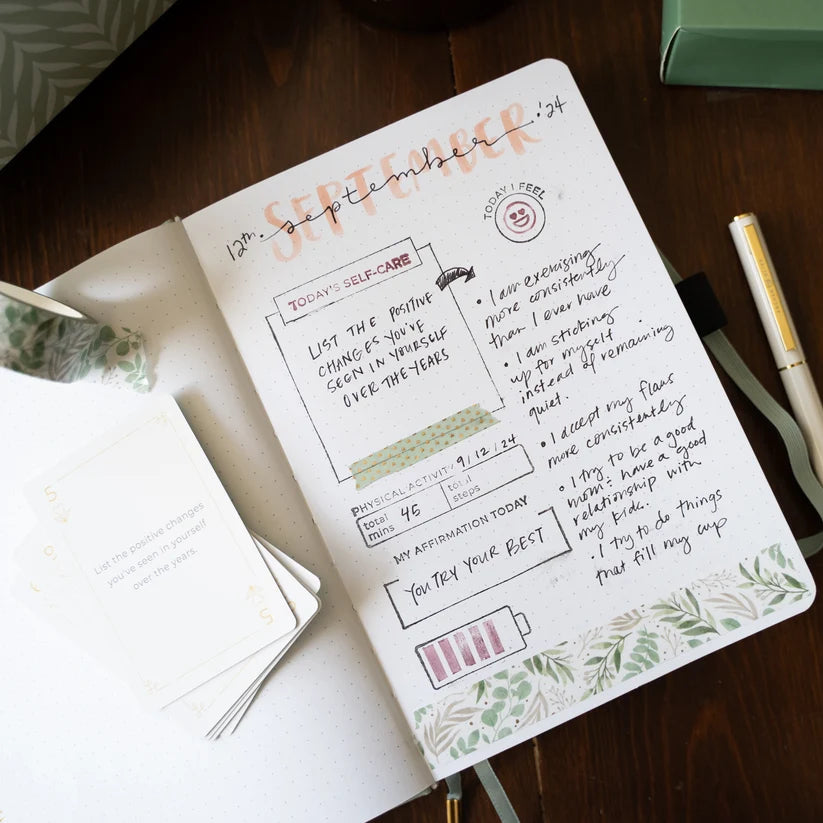 SEPTEMBER
12th. september '24
TODAY I FEEL
TODAY'S SELF-CARE
LIST THE POSITIVE
CHANGES YOU'VE
SEEN IN YOURSELF
OVER THE YEARS
PHYSICAL ACTIVITY 9/12/24
total
mins 45
total
steps
MY AFFIRMATION TODAY
YOU TRY YOUR BEST
• I am exercising
more consistently
than I ever have
• I am sticking
up for myself
instead of remaining
quiet.
• I accept my flaws
more consistently
• I try to be a good
mom & have a good
relationship with
my kids.
• I try to do things
that fill my cup
5
List the positive changes
you've seen in yourself
over the years.
5